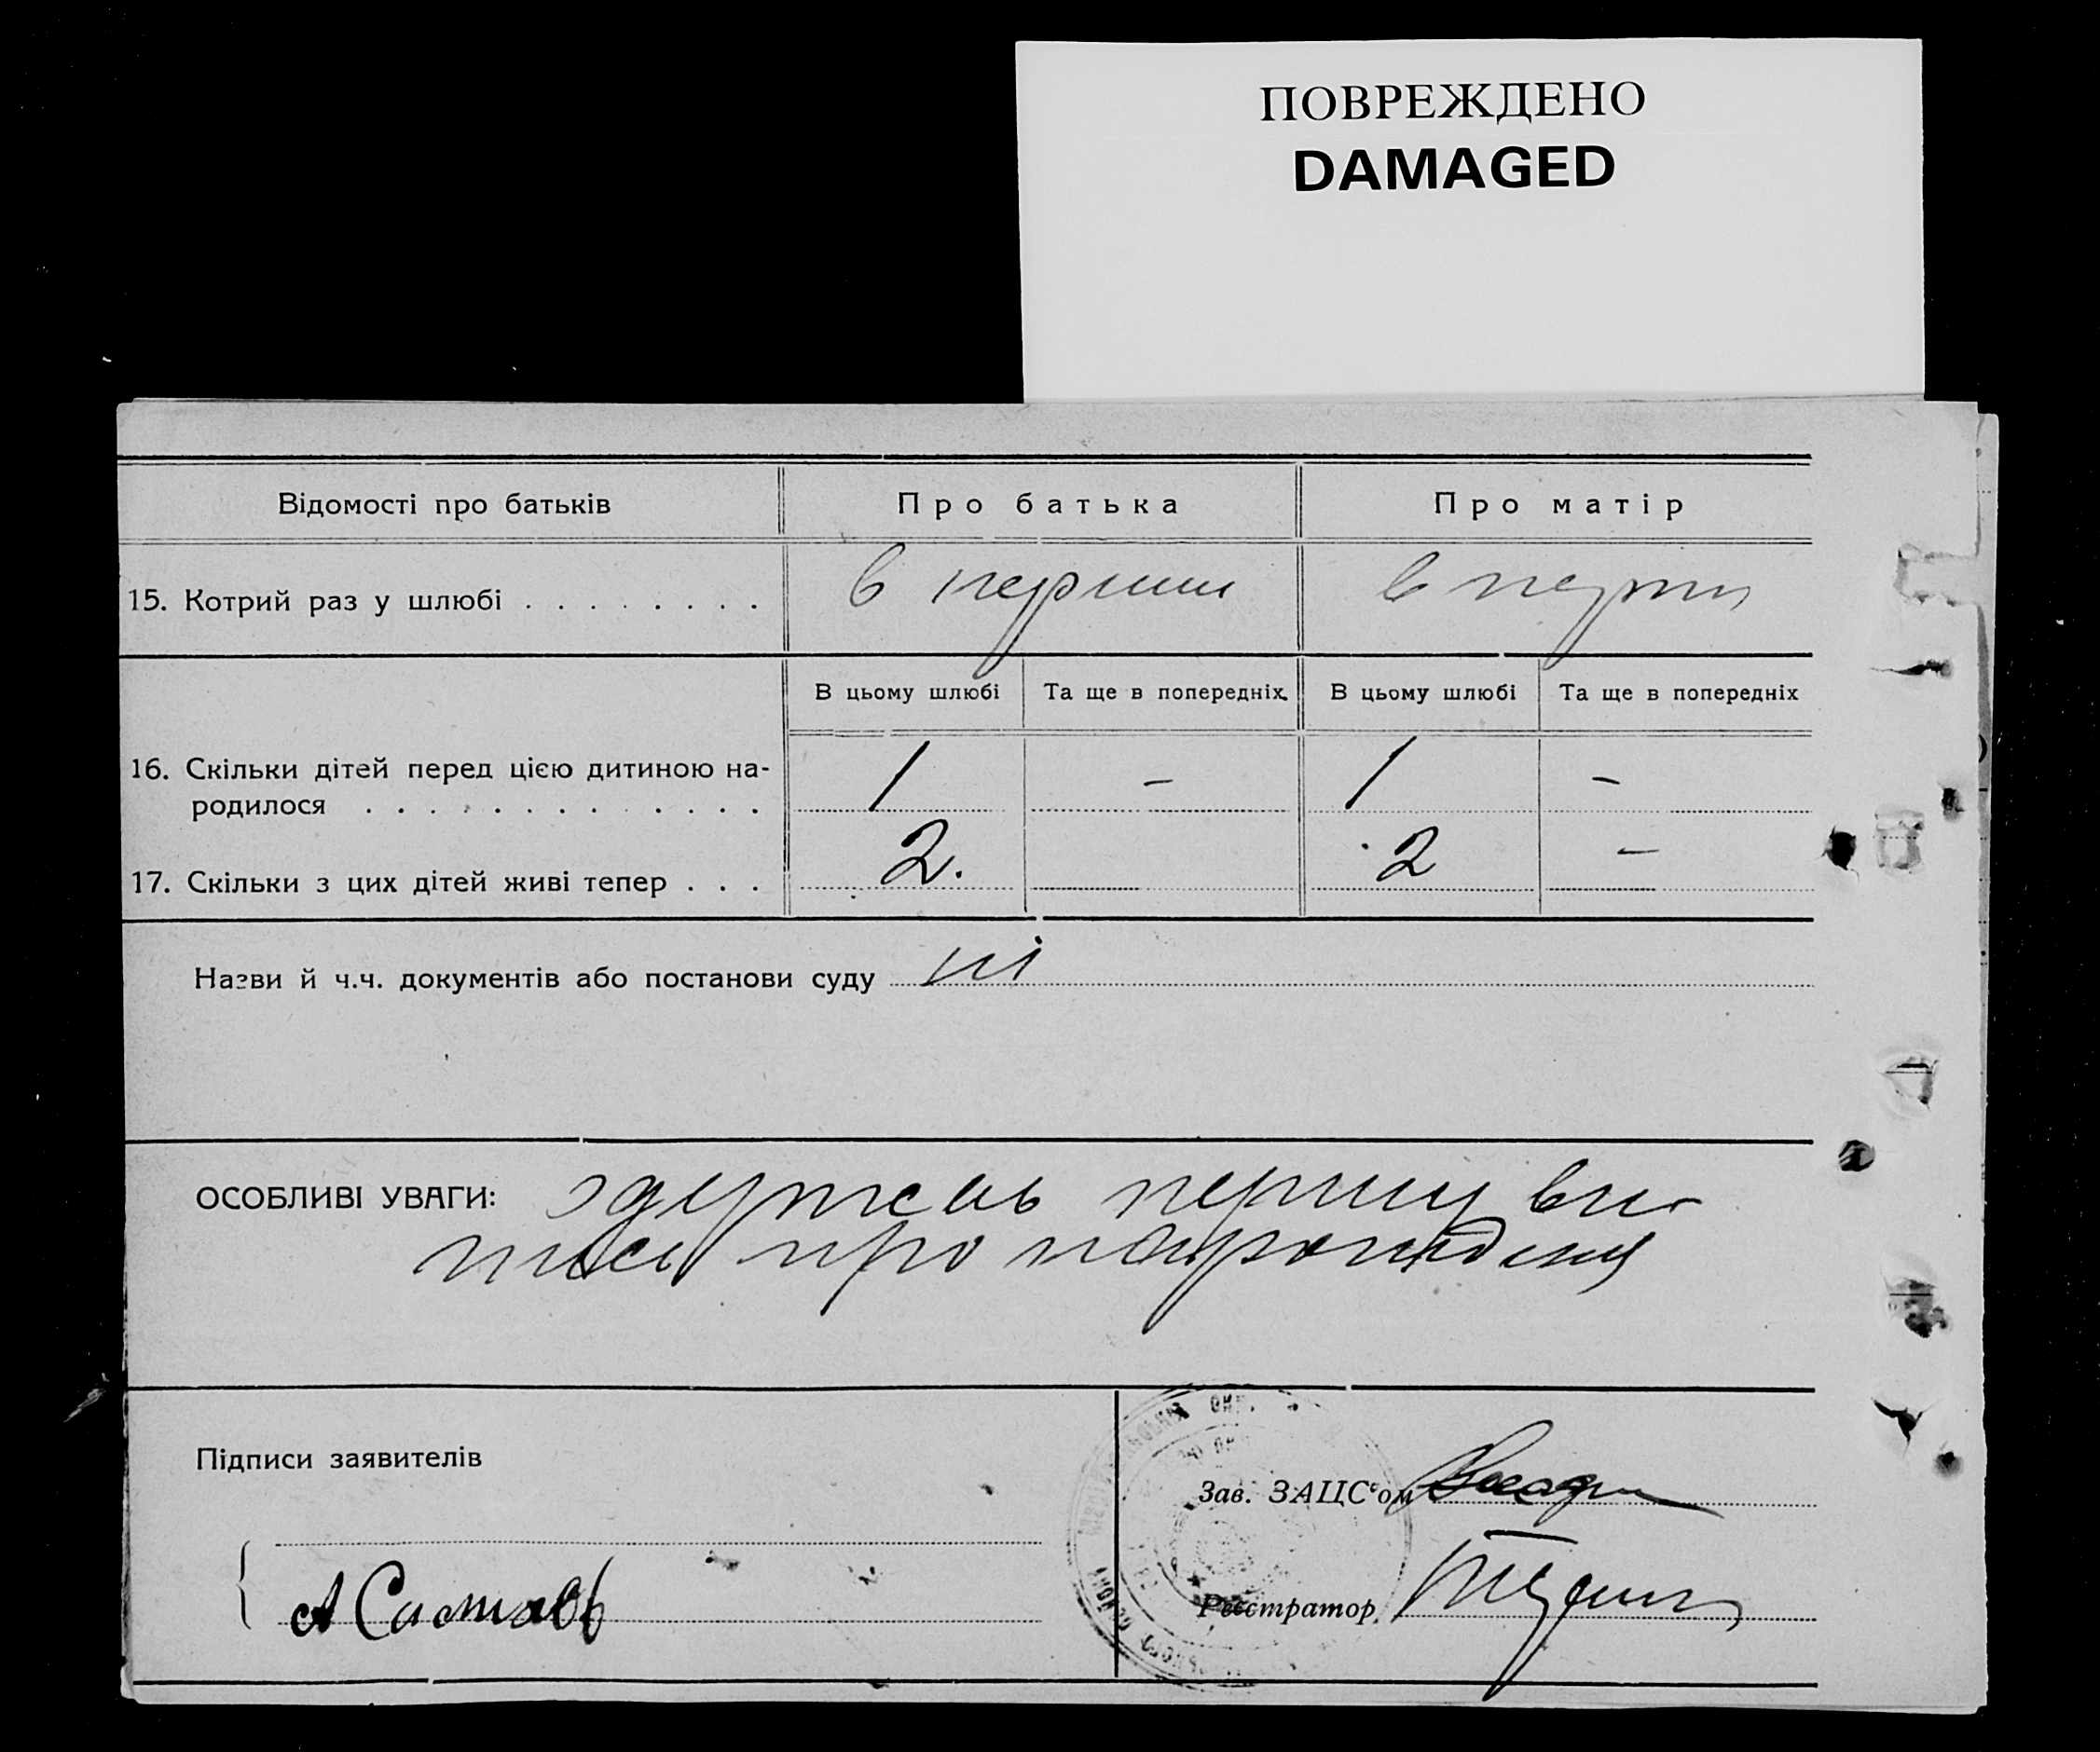 ПОВРЕЖДЕНО
DAMAGED
Відомості про батьків Про батька Про матір
15. Котрий раз у шлюбі . . . . . . . . в перший в перши
В цьому шлюбі Та ще в попередніх В цьому шлюбі Та ще в попередніх
16. Скільки дітей перед цією дитиною на-
родилося . . . . . . . . . . . . . 1 – 1 –
17. Скільки з цих дітей живі тепер . . . 2. 2 –
Назви й ч.ч. документів або постанови суду ні
ОСОБЛИВІ УВАГИ: одержав першу ви-
пись про народження
Підписи заявителів
Зав. ЗАЦС'ом
Реєстратор